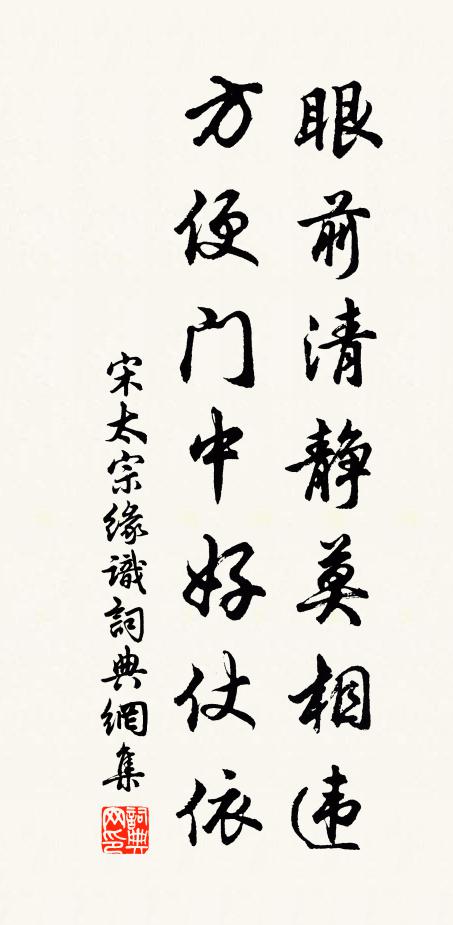 眼前清静莫相违
方便门中好仗依
宋太宗緣識詞典網集
詞典網印